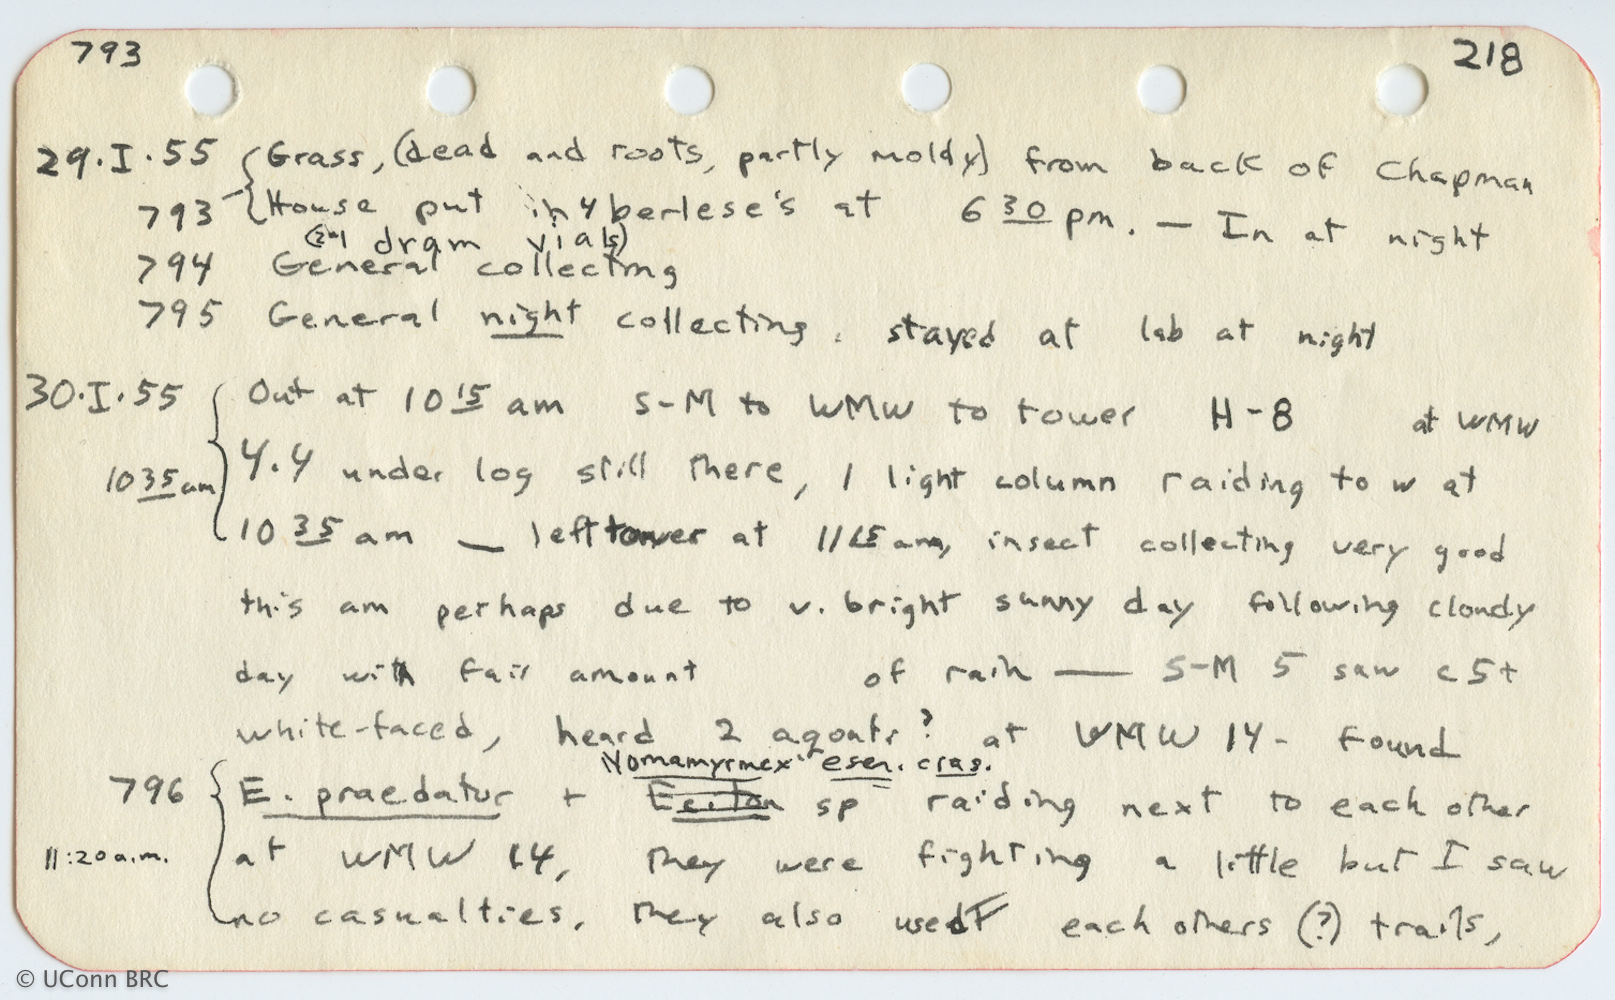 793 218
29.I.55 Grass, (dead and roots, partly moldy) from back of Chapman
793 House put in 4 berlese's at 6 30 pm. — In at night
dram vials)
794 General collecting
795 General night collecting. stayed at lab at night
30.I.55 Out at 10 15 am S-M to WMW to tower H-8 at WMW
4.4 under log still there, 1 light column raiding to w at
10 35 am
10 35 am — left tower at 11 15 am, insect collecting very good
this am perhaps due to v. bright sunny day following cloudy
day with fair amount of rain — S-M 5 saw c 5+
white-faced, heard 2 agouti? at WMW 14 - Found
Nomamyrmex esen. cras.
796 E. praedatur + Eciton sp raiding next to each other
at WMW 14, they were fighting a little but I saw
11:20 a.m.
no casualties, they also used each others (?) trails,
© UConn BRC